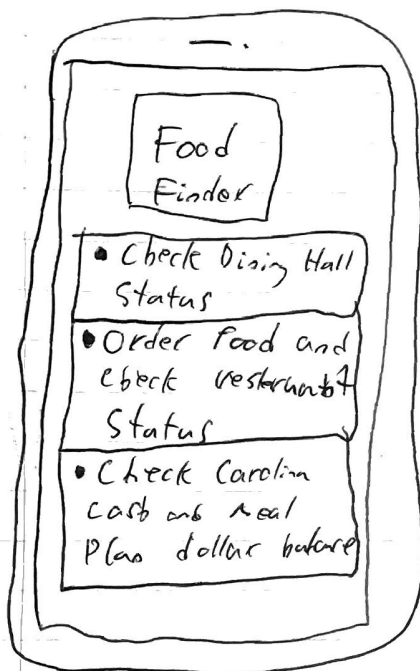 Food
Finder
• Check Dining Hall
Status
• Order Food and
check
Status
• Check Carolina
Cash and meal
Plan dollar balance